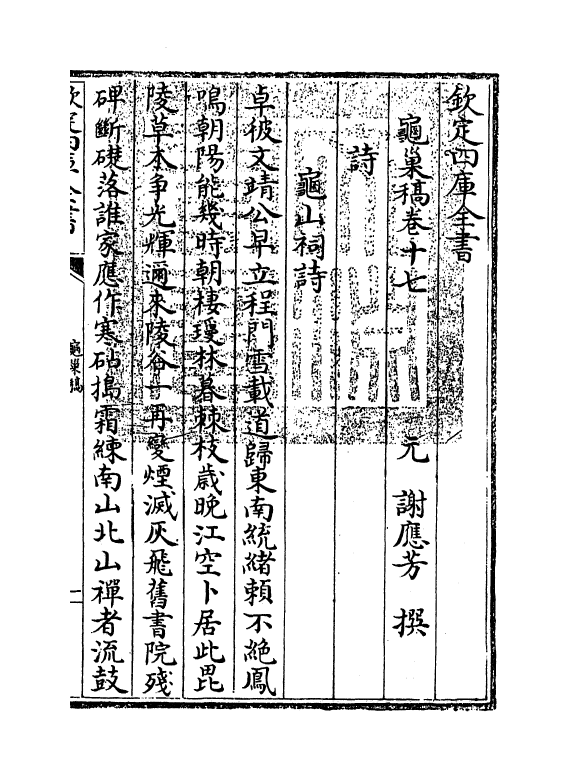 欽定四庫全書
龜巢稿卷十七
元 謝應芳 撰
詩
龜山祠詩
卓彼文靖公早立程門雪載道歸東南統緒頼不絶鳳
鳴朝陽能幾時朝棲瓊林暮棘枝歲晚江空卜居此毘
陵草木争光輝邇來陵谷一再變煙滅灰飛舊書院殘
碑斷礎落誰家應作寒砧搗霜練南山北山禪者流鼓
欽定四庫全書
龜巢稿
一